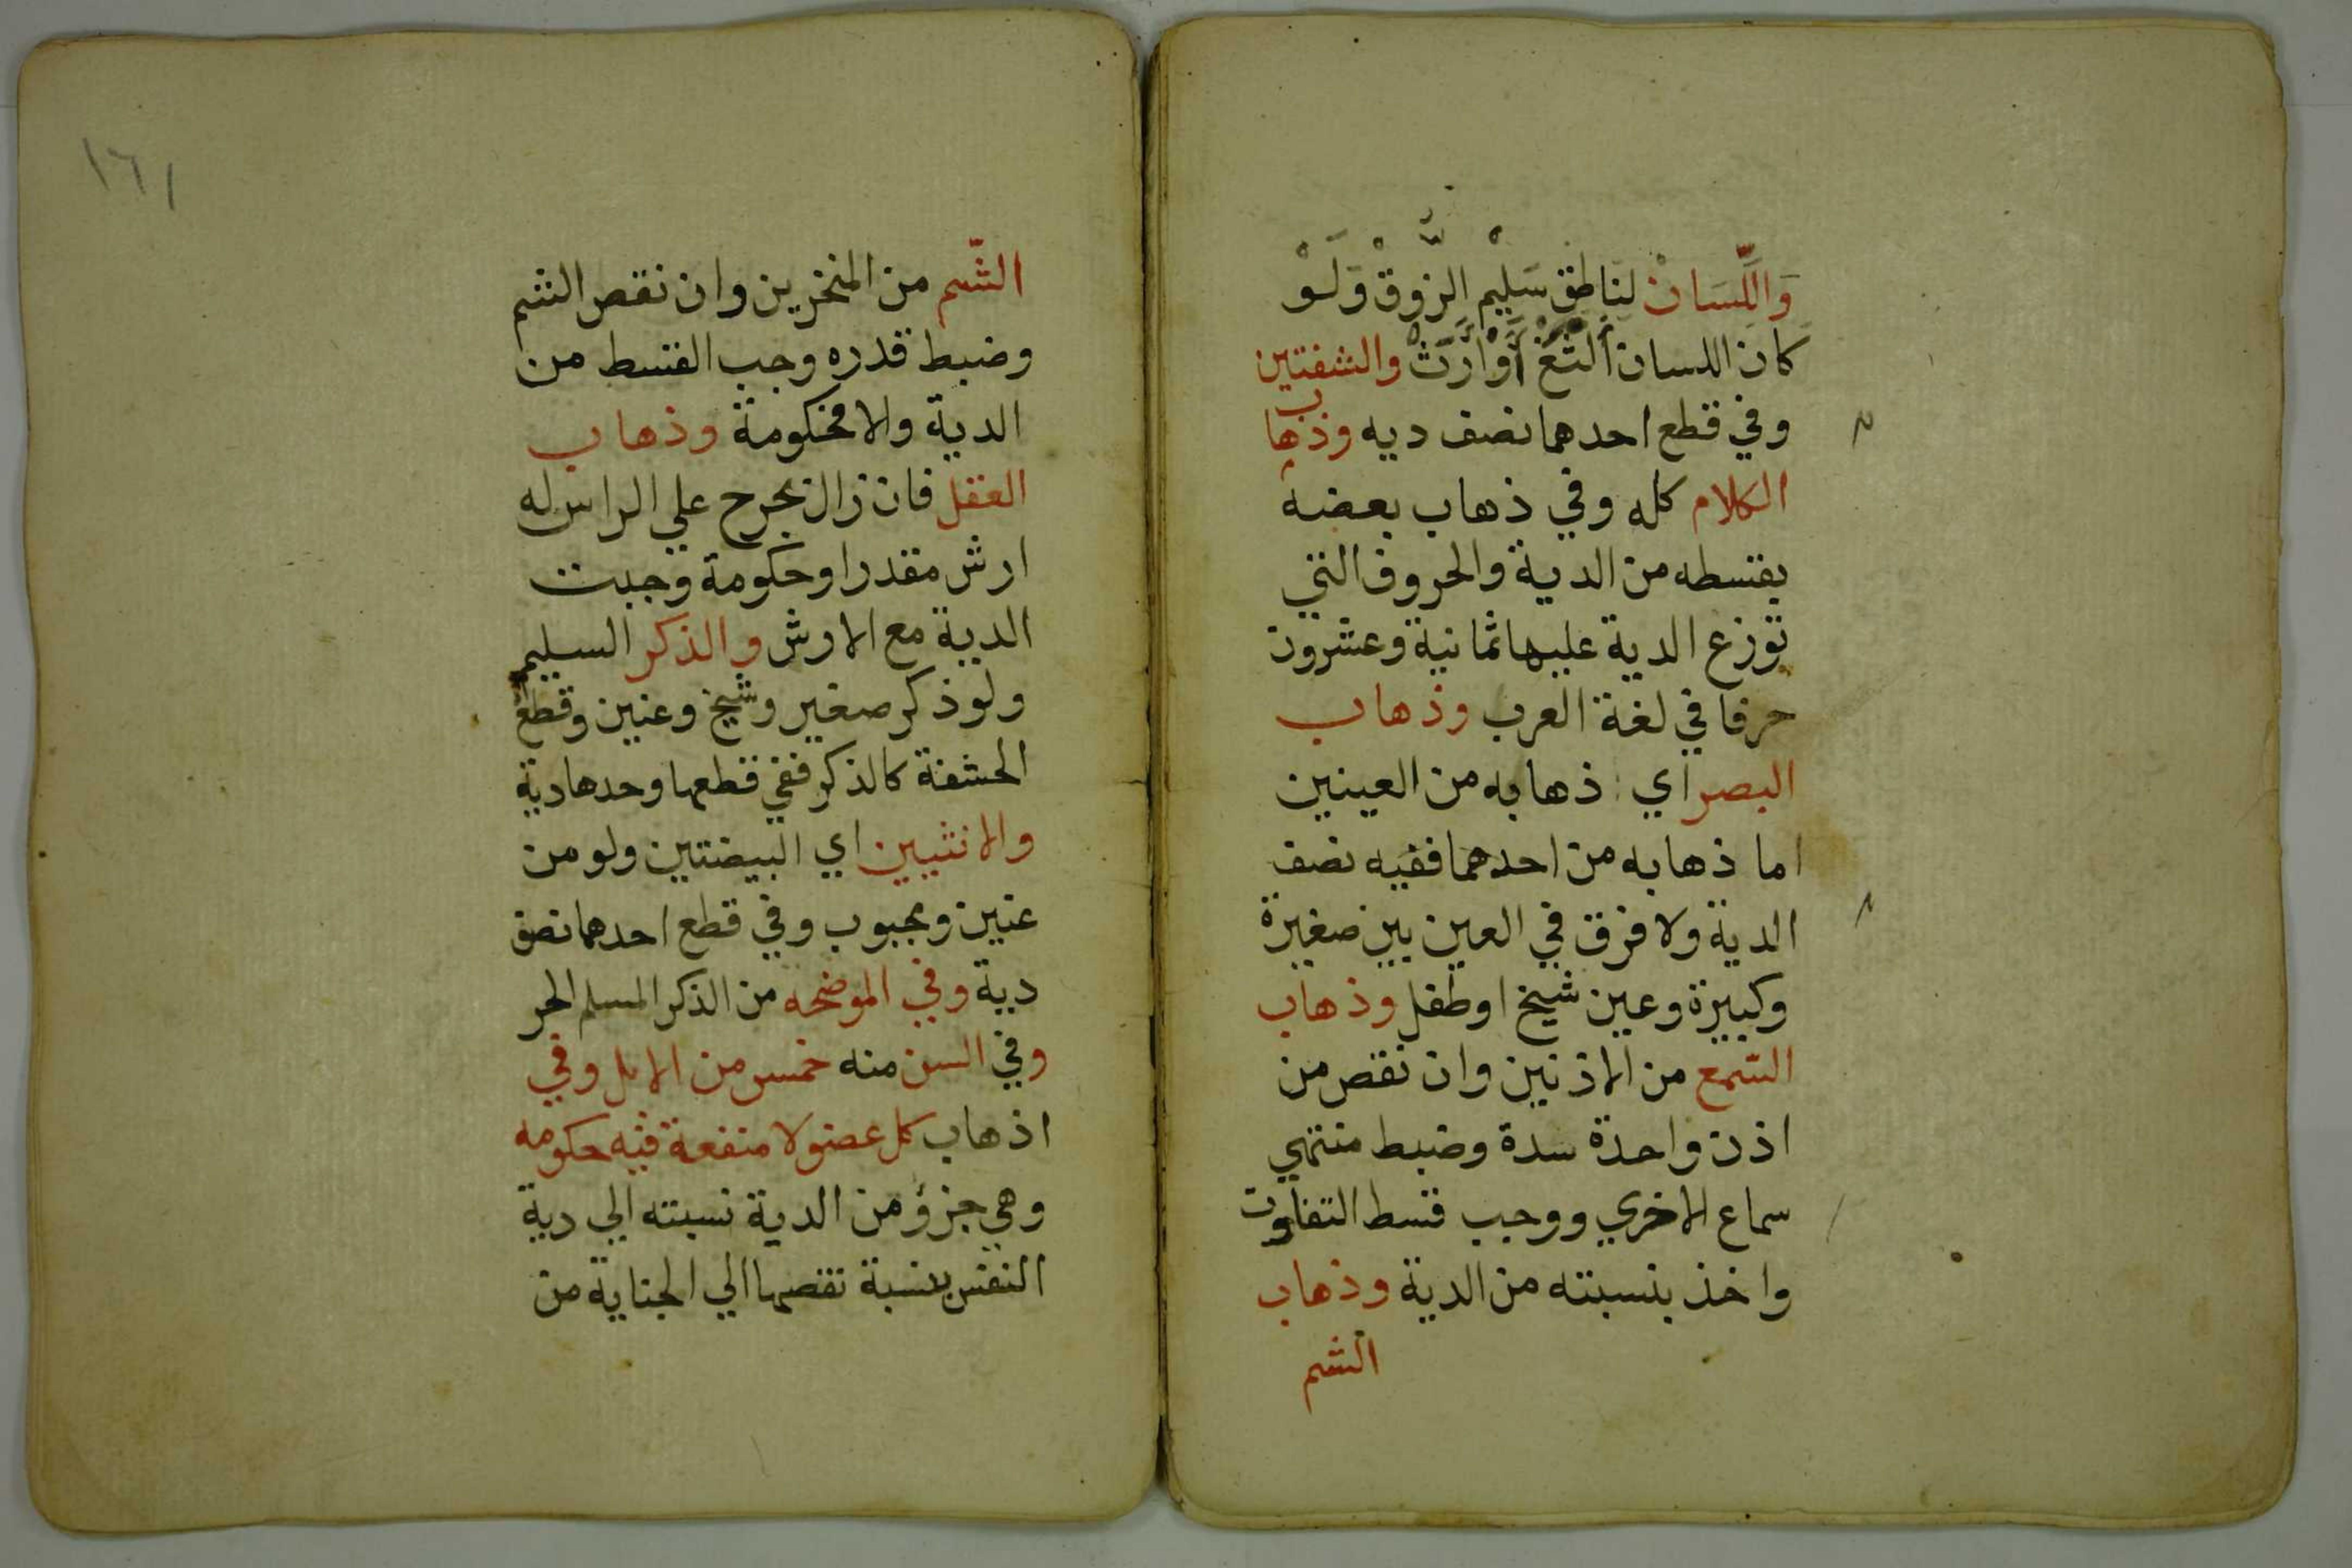 وَاللِّسَانْ لنَاطِقْ سَلِيْمِ الزَّوقْ وَلَوْ
كَان اللسان ألثغ أَوْ أَرَتْ والشفتين
وفي قطع احدهما نصف ديه وذهاب
الكلام كله وفي ذهاب بعضه
بقسطه من الدية والحروف التي
توزع الدية عليها ثمانية وعشرون
حرفا في لغة العرب وذهاب
البصر اي ذهابه من العينين
اما ذهابه من احدهما ففيه نصف
الدية ولا فرق في العين بين صغيرة
وكبيرة وعين شيخ او طفل وذهاب
السّمع من الاذنين وان نقص من
اذن واحدة سدة وضبط منتهي
سماع الاخري ووجب قسط التفاوت
واخذ بنسبته من الدية وذهاب
الشم
١٦١
الشّم من المنخرين وان نقص الشم
وضبط قدره وجب القسط من
الدية والا فحكومة وذهاب
العقل فان زال بجرح علي الراس له
ارش مقدر او حكومة وجبت
الدية مع الارش والذكر السليم
ولو ذكر صغير وشيخ وعنين وقطع
الحشفة كالذكر ففي قطعها وحدها دية
والانثيين اي البيضتين ولو من
عنين ومجبوب وفي قطع احدهما نصف
دية وفي الموضحه من الذكر المسلم الحر
وفي السن منه خمس من الابل وفي
اذهاب كل عضو لا منفعة فيه حكومه
وهي جزؤ من الدية نسبته الي دية
النفس بنسبة نقصها الي الجناية من